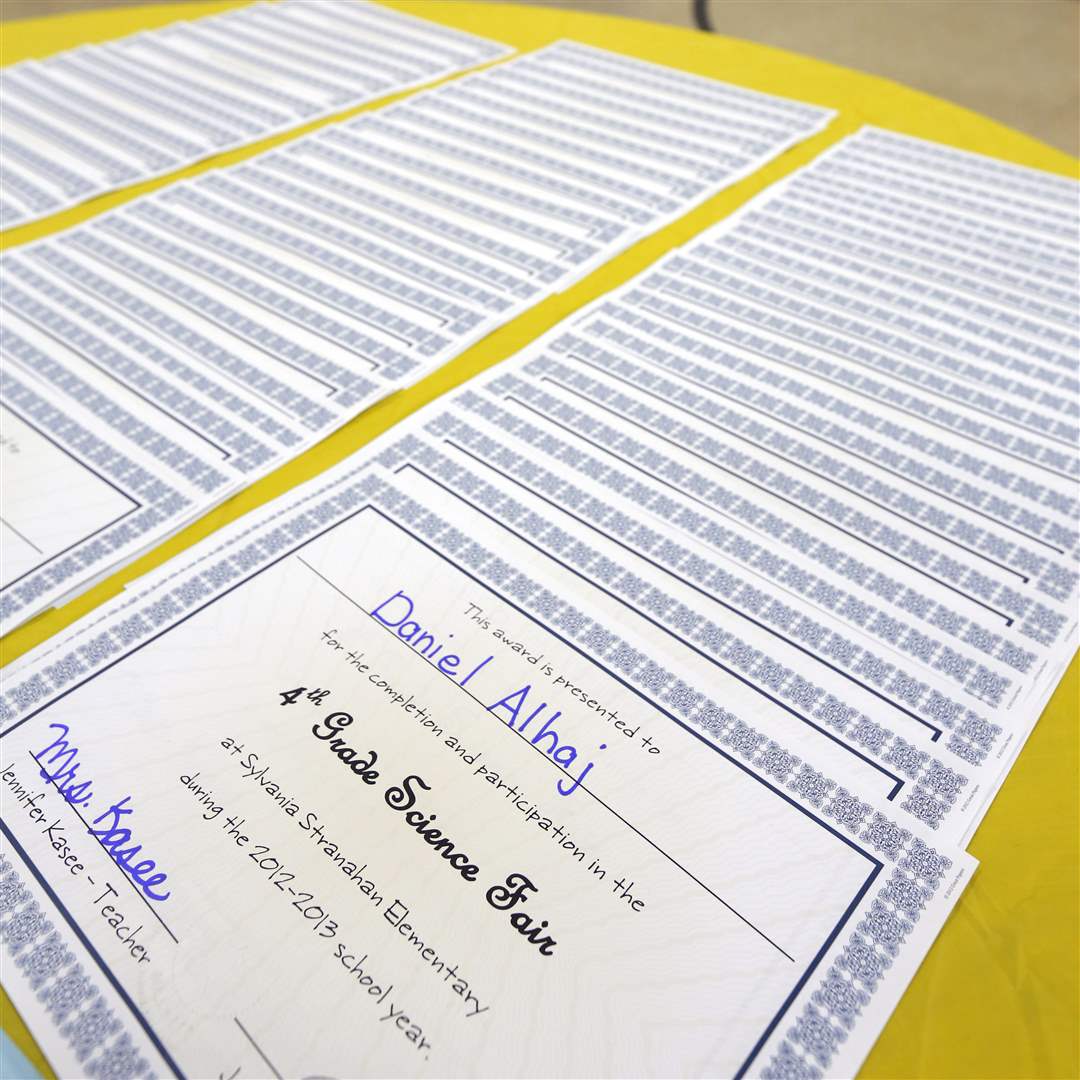 This award is presented to
Daniel Alhaj
for the completion and participation in the
4th Grade Science Fair
at Sylvania Stranahan Elementary
during the 2012-2013 school year.
Mrs. Kasee
Jennifer Kasee - Teacher